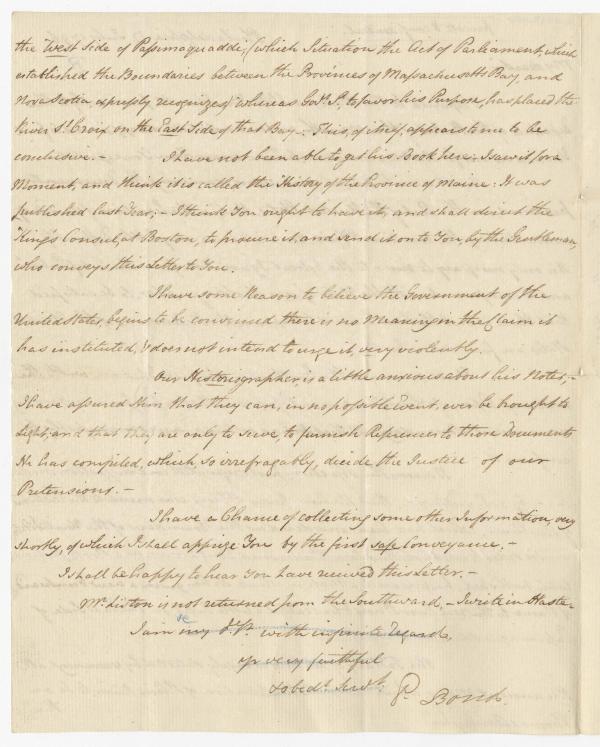 the West Side of Passimaquaddi; (which Situation the Act of Parliament, which
established the Boundaries between the Provinces of Massachusetts Bay, and
Nova Scotia expressly recognizes) whereas Gov.r S. to favor his Purpose, has placed the
River St. Croix on the East Side of that Bay. This, of itself, appears to me to be
conclusive. — I have not been able to get his Book here: I saw it, for a
Moment, and think it is called the History of the Province of Maine: It was
published last Year; — I think You ought to have it, and shall direct the
King's Consul, at Boston, to procure it, and send it on to You, by the Gentleman,
who conveys this Letter to You.
I have some Reason to believe the Government of the
United States, begins to be convinced there is no Meaning in the Claim it
has instituted, & does not intend to urge it, very violently.
Our Historiographer is a little anxious about his Notes, —
I have assured Him that they can, in no possible Event, ever be brought to
Light; and that they are only to serve, to furnish References to those Documents
He has compiled, which, so irrefragably, decide the Justice of our
Pretensions. —
I have a Chance of collecting some other Information, very
shortly, of which I shall apprize You by the first safe Conveyance. —
I shall be happy to hear You have received this Letter. —
Mr. Liston is not returned from the Southward, — I write in Haste.
I am my d. Sr. with infinite Regard,
yr very faithful
& obedt. Servt.
P. Bond.